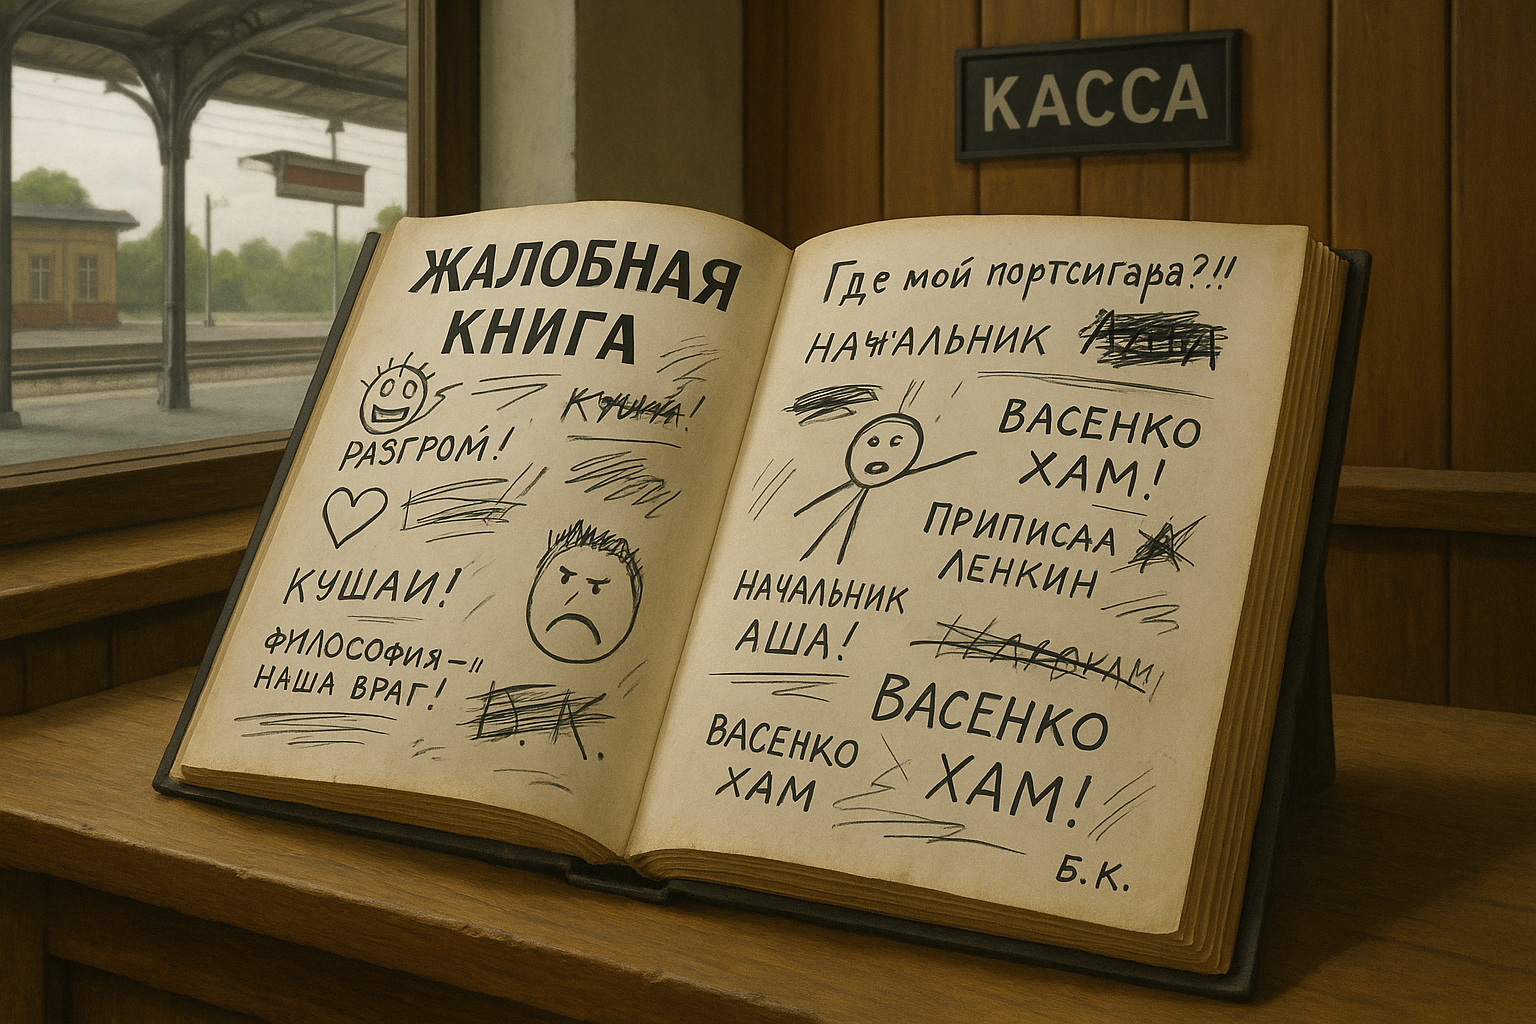 КАССА
ЖАЛОБНАЯ
КНИГА
РАЗГРОМ́!
КУШАИ!
ФИЛОСОФИЯ –
НАША ВРАГ!
Где мой портсигара?!!
НАЧАЛЬНИК
ВАСЕНКО
ХАМ!
ПРИПИСАА
ЛЕНКИН
НАЧАЛЬНИК
АША!
ВАСЕНКО
ХАМ!
ВАСЕНКО
ХАМ
Б.К.